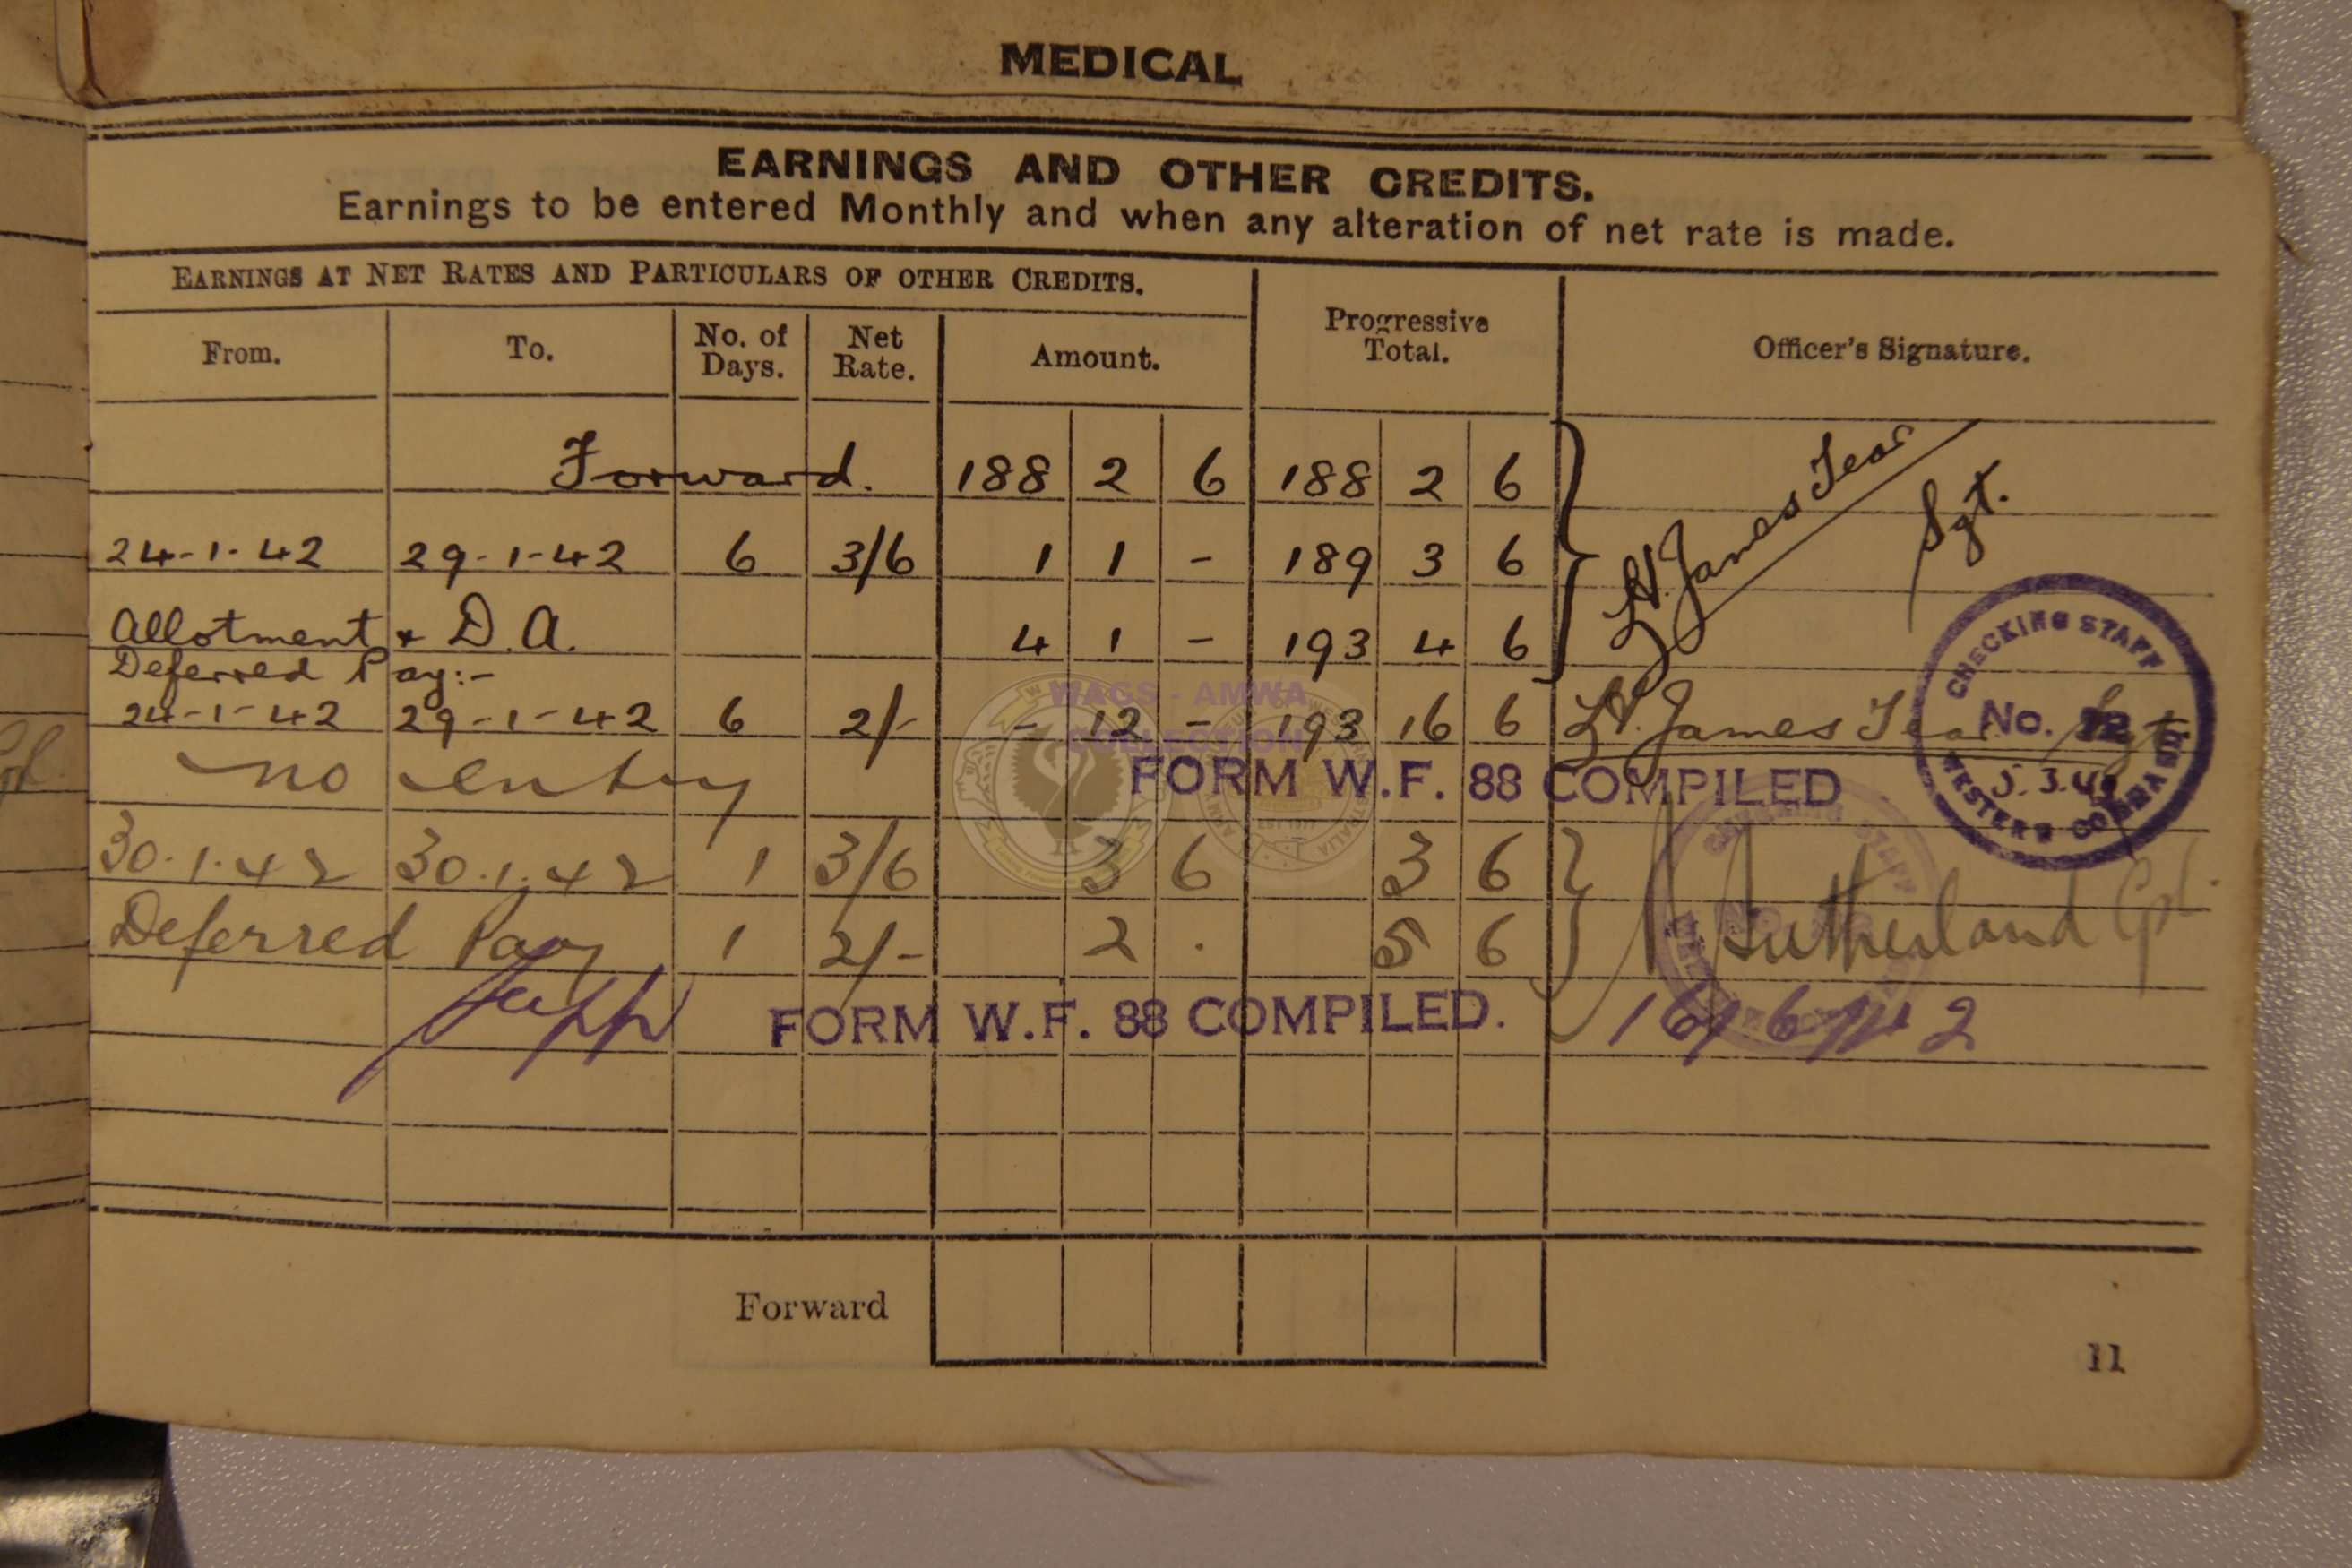 MEDICAL
EARNINGS AND OTHER CREDITS.
Earnings to be entered Monthly and when any alteration of net rate is made.
EARNINGS AT NET RATES AND PARTICULARS OF OTHER CREDITS.
From. To. No. of Days. Net Rate. Amount. Progressive Total. Officer's Signature.
Forward. 188 2 6 188 2 6
24-1-42 29-1-42 6 3/6 1 1 - 189 3 6 James Sgt.
Allotment & D.A. 4 1 - 193 4 6
Deferred Pay:-
24-1-42 29-1-42 6 2/- - 12 - 193 16 6 James
CHECKING STAFF
No. 12
WESTERN COMMAND
WAGS - AMWA
COLLECTION
no entry
FORM W.F. 88 COMPILED
30.1.42 30.1.42 1 3/6 3 6 3 6
Deferred Pay 1 2/- 2 . 5 6 Sutherland Cpl.
FORM W.F. 88 COMPILED.
16/6/42
Forward
11